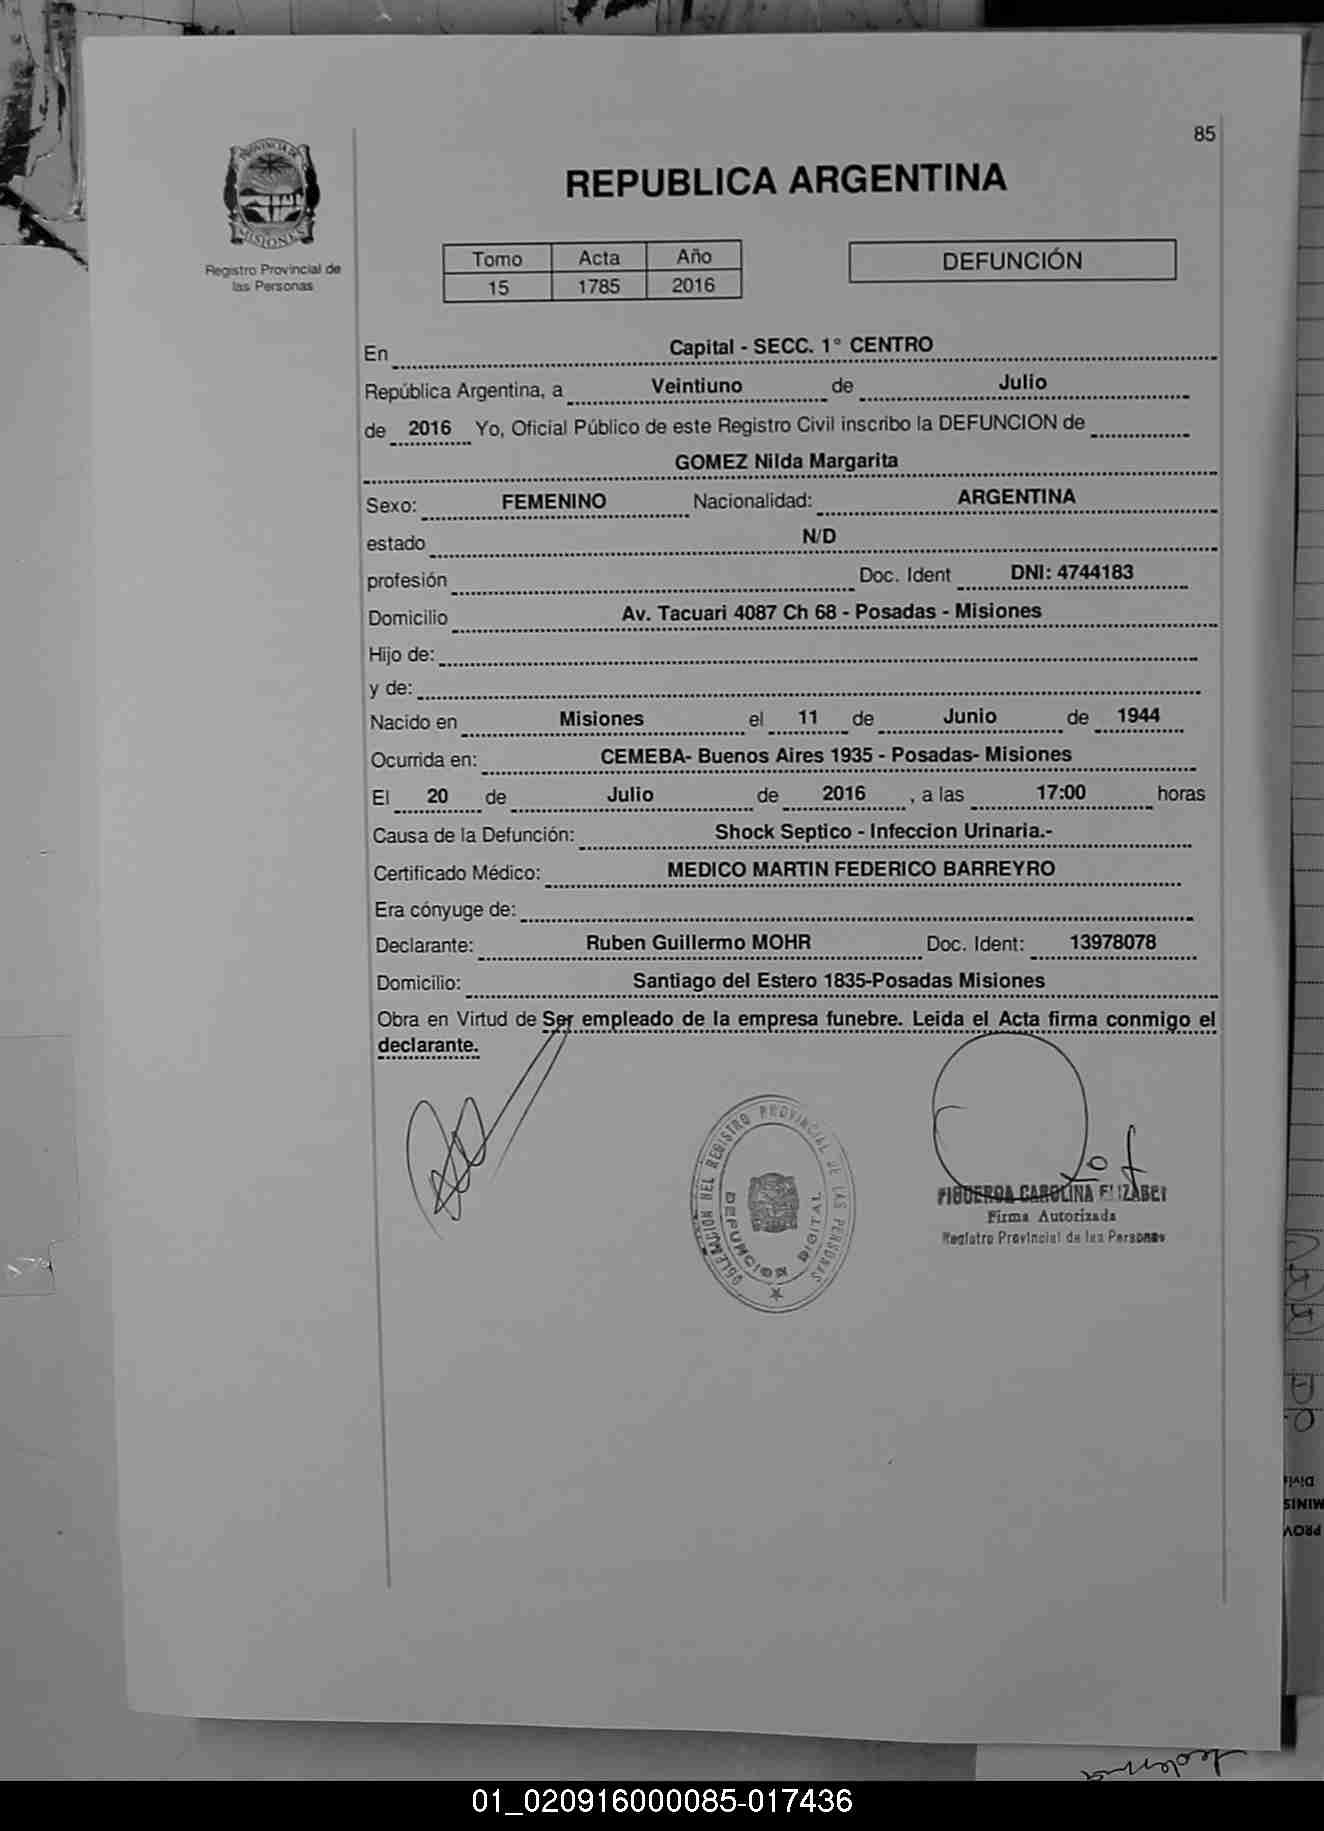 85
PROVINCIA DE
MISIONES
Registro Provincial de
las Personas
REPUBLICA ARGENTINA
Tomo Acta Año
15 1785 2016
DEFUNCIÓN
En Capital - SECC. 1° CENTRO
República Argentina, a Veintiuno de Julio
de 2016 Yo, Oficial Público de este Registro Civil inscribo la DEFUNCION de
GOMEZ Nilda Margarita
Sexo: FEMENINO Nacionalidad: ARGENTINA
estado N/D
profesión Doc. Ident DNI: 4744183
Domicilio Av. Tacuari 4087 Ch 68 - Posadas - Misiones
Hijo de:
y de:
Nacido en Misiones el 11 de Junio de 1944
Ocurrida en: CEMEBA- Buenos Aires 1935 - Posadas- Misiones
El 20 de Julio de 2016 , a las 17:00 horas
Causa de la Defunción: Shock Septico - Infeccion Urinaria.-
Certificado Médico: MEDICO MARTIN FEDERICO BARREYRO
Era cónyuge de:
Declarante: Ruben Guillermo MOHR Doc. Ident: 13978078
Domicilio: Santiago del Estero 1835-Posadas Misiones
Obra en Virtud de Ser empleado de la empresa funebre. Leida el Acta firma conmigo el
declarante.
DELEGACION DEL REGISTRO PROVINCIAL DE LAS PERSONAS
DEFUNCION DIGITAL
FIGUEROA CAROLINA ELIZABET
Firma Autorizada
Registro Provincial de las Personas
01_020916000085-017436